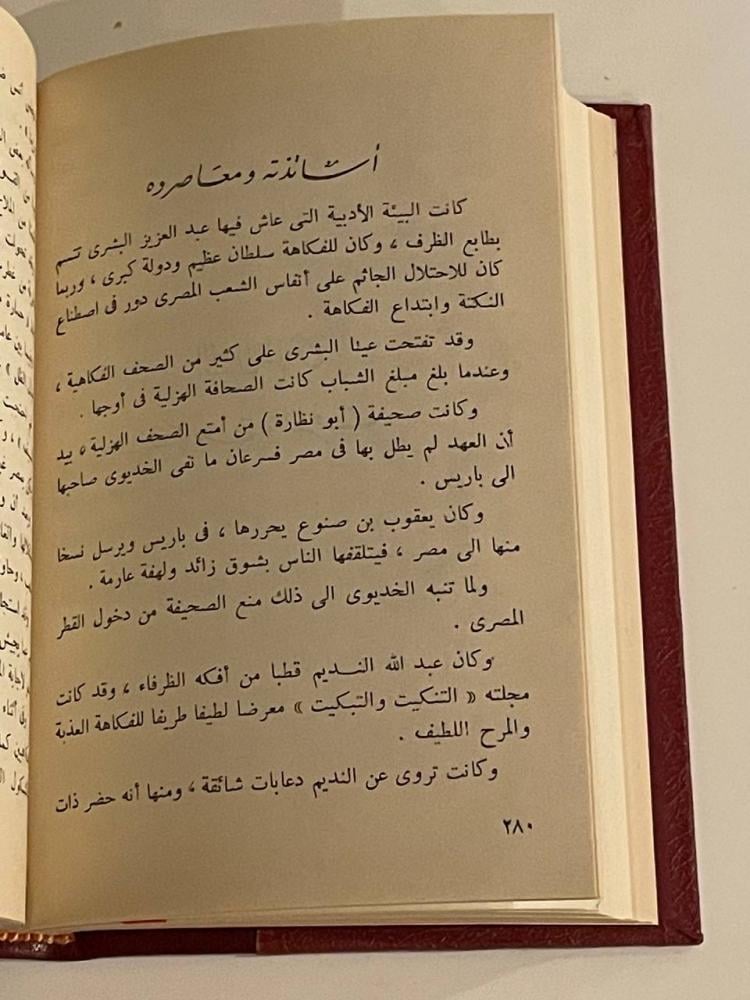 أساتذته ومعاصروه
كانت البيئة الأدبية التى عاش فيها عبد العزيز البشرى تتسم
بطابع الظرف ، وكان للفكاهة سلطان عظيم ودولة كبرى ، وربما
كان للاحتلال الجاثم على أنفاس الشعب المصرى دور فى اصطناع
النكتة وابتداع الفكاهة .
وقد تفتحت عينا البشرى على كثير من الصحف الفكاهية ،
وعندما بلغ مبلغ الشباب كانت الصحافة الهزلية فى أوجها .
وكانت صحيفة ( أبو نظارة ) من أمتع الصحف الهزلية ، بيد
أن العهد لم يطل بها فى مصر فسرعان ما نفى الخديوى صاحبها
الى باريس .
وكان يعقوب بن صنوع يحررها ، فى باريس ويرسل نسخا
منها الى مصر ، فيتلقفها الناس بشوق زائد ولهفة عارمة .
ولما تنبه الخديوى الى ذلك منع الصحيفة من دخول القطر
المصرى .
وكان عبد الله النــديم قطبا من أفكه الظرفاء ، وقد كانت
مجلته « التنكيت والتبكيت » معرضا لطيفا طريفا للفكاهة العذبة
والمرح اللطيف .
وكانت تروى عن النديم دعابات شائقة ، ومنها أنه حضر ذات
٢٨٠